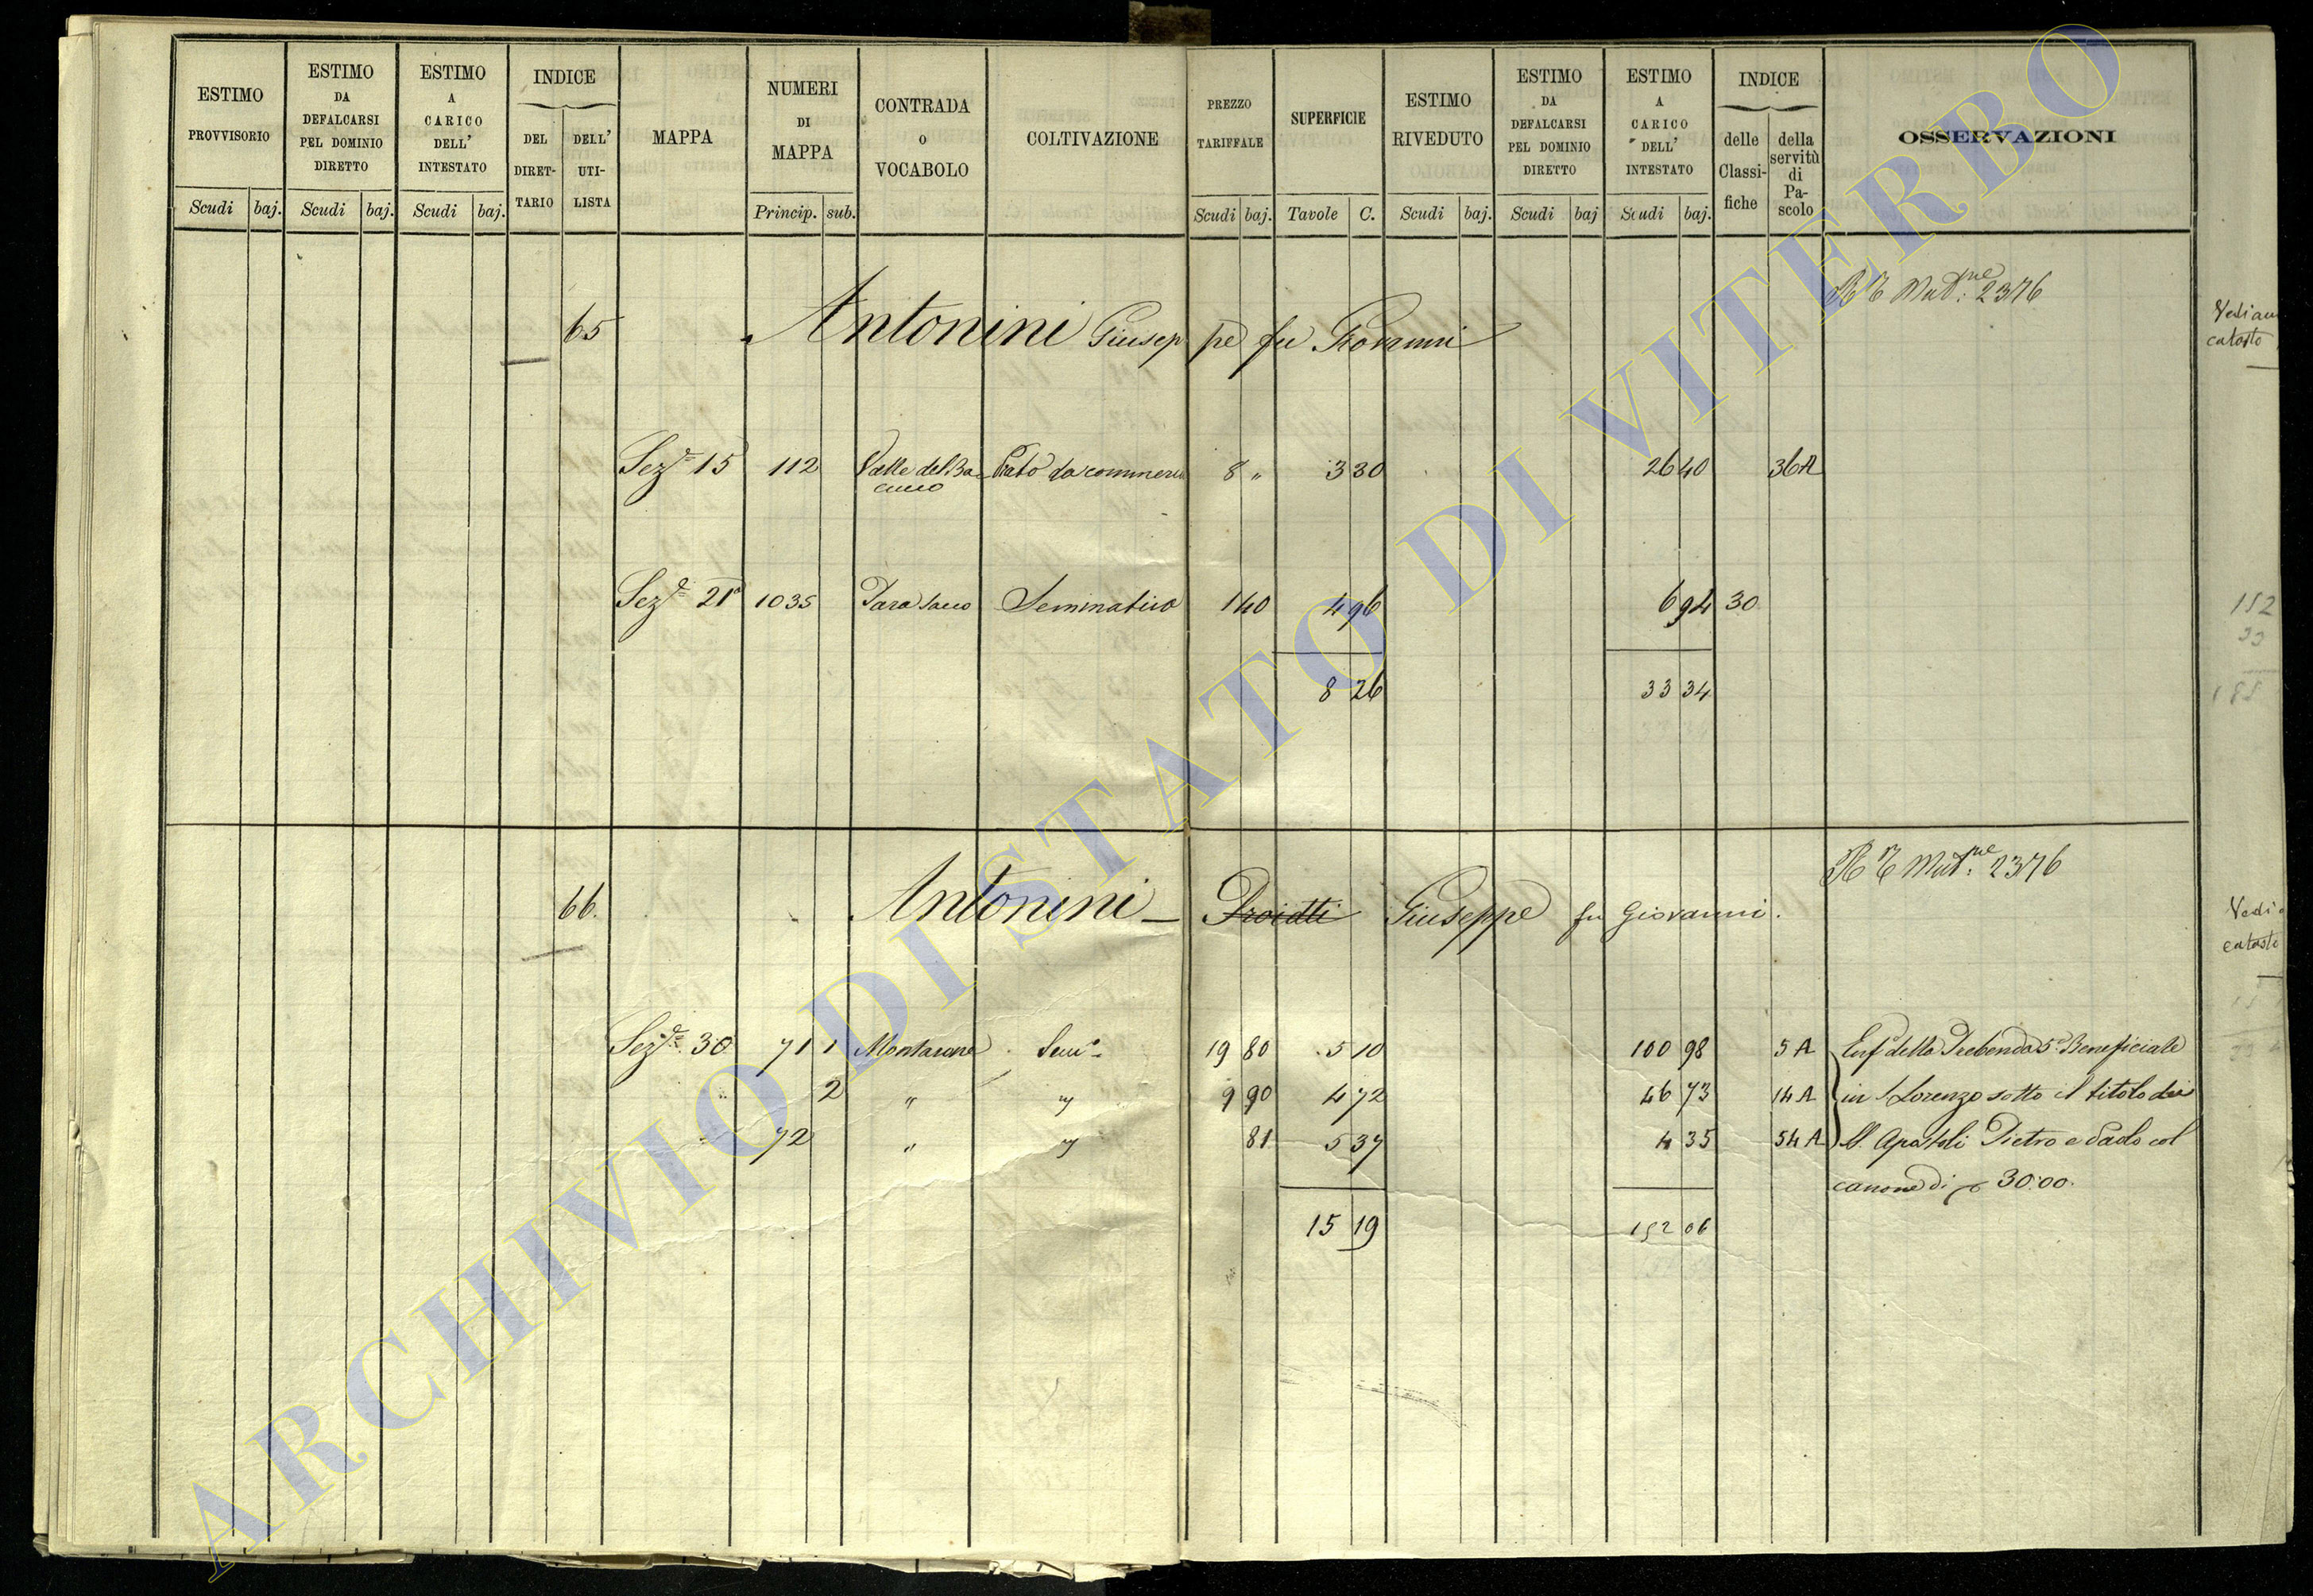 ESTIMO PROVVISORIO
Scudi baj.
ESTIMO DA DEFALCARSI PEL DOMINIO DIRETTO
Scudi baj.
ESTIMO A CARICO DELL' INTESTATO
Scudi baj.
INDICE
DEL DIRET-TARIO
DELL' UTI-LISTA
MAPPA
NUMERI DI MAPPA
Princip. sub.
CONTRADA o VOCABOLO
COLTIVAZIONE
PREZZO TARIFFALE
Scudi baj.
SUPERFICIE
Tavole C.
ESTIMO RIVEDUTO
Scudi baj.
ESTIMO DA DEFALCARSI PEL DOMINIO DIRETTO
Scudi baj
ESTIMO A CARICO DELL' INTESTATO
Scudi baj.
INDICE
delle Classi-fiche
della servitù di Pa-scolo
OSSERVAZIONI
Mut.ne 2376
65 Antonini Giuseppe fu Giovanni
Vedi
catasto
Sez.e 15 112 Valle del Ba Prato da 8 " 3 30 26 40 36 A
Sez.e 21a 1035 Para sacco Seminativo 1 40 4 96 6 94 30
152
33
8 26 33 34
185
Mut.ne 2376
66. Antonini - Proietti Giuseppe fu Giovanni.
Vedi
catasto
Sez.e 30 71 1 Montarone Sem.o 19 80 5 10 100 98 5 A Enf.a della Prebenda 5a Beneficiale
" 2 " " 9 90 4 72 46 73 14 A in S Lorenzo sotto il titolo dei
" 72 " " 81 5 37 4 35 54 A SS. Apostoli Pietro e Paolo col
canone di 30:00.
15 19 152 06
ARCHIVIO DI STATO DI VITERBO